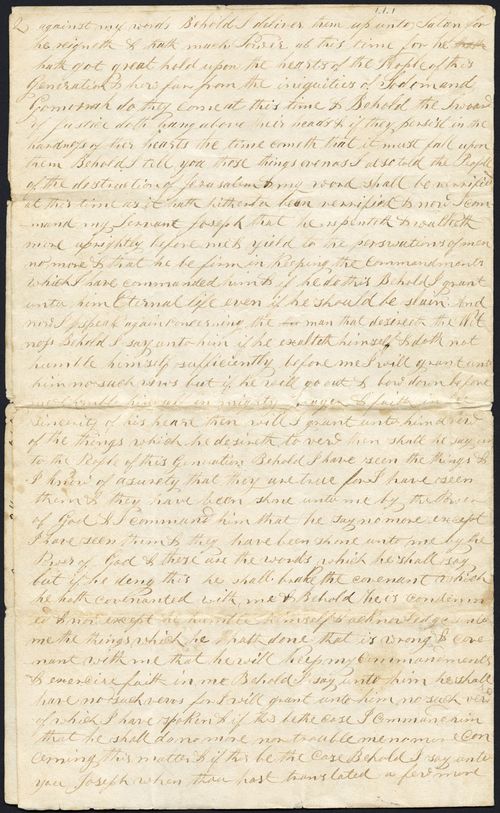 2 against my words Behold I deliver them up unto Satan for
he reigneth & hath much Power at this time for he
hath got great hold upon the hearts of the People of this
Generation & far from the iniquities of Sodom and
Gomorrah do they come at this time & Behold the Sword
of Justice doth hang above their heads & if they persist in the
hardness of their hearts the time cometh that it must fall upon
them Behold I tell you these things even as I also told the People
of the destruction of Jerusalem & my word shall be verrified
at this time as it hath hitherto been verrified & now I com
mand my Servant Joseph that he repenteth & walketh
more uprightly before me & yield to the perswasions of men
no more & that he be firm in keeping the Commandments
which I have commanded him & if he do this Behold I grant
unto him Eternal life even if he should be slain And
now I speak again concerning the man that desireth the Wit
ness Behold I say unto him if he exalteth himself & doth not
humble himself sufficiently before me I will grant unto
him no such views but if he will go out & bow down before
me & humble himself in mighty prayer & faith in the
sincerity of his heart then will I grant unto him a view
of the things which he desireth to view then shall he say un
to the People of this Generation Behold I have seen the things &
I know of asurety that they are true for I have seen
them & they have been shone unto me by the Power
of God & I command him that he say no more except
I have seen them & they have been shone unto me by the
Power of God & these are the words which he shall say
but if he deny this he shall brake the covenant which
he hath covenanted with me & Behold he is condemn
ed & now except he humble himself & acknowledge unto
me the things which he hath done that is wrong & cove
nant with me that he will Keep my Commandments
& exercise faith in me Behold I say unto him he shall
have no such views for I will grant unto him no such
of which I have spoken & if this be the case I Command him
that he shall do no more nor trouble me no more con
cerning this matter & if this be the Case Behold I say unto
you Joseph when thou hast translated a few more